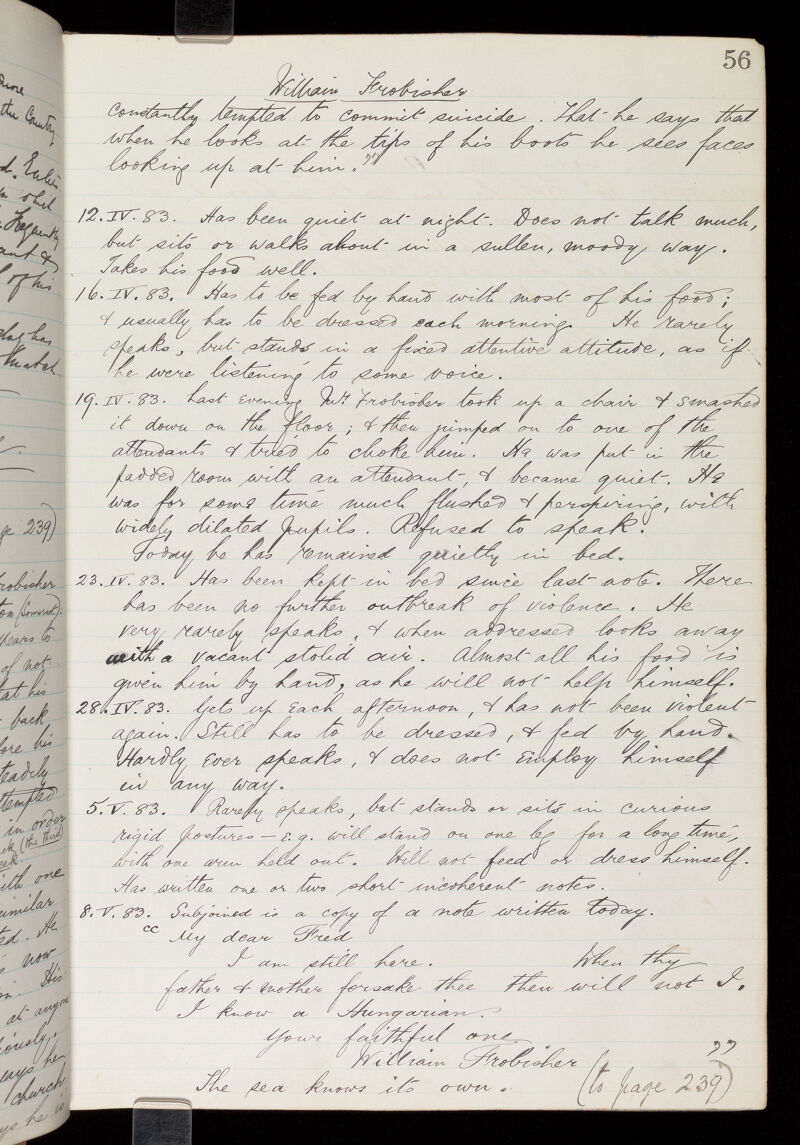 56
William Frobisher
constantly tempted to commit suicide. That he says that
when he looks at the tips of his boots he sees faces
looking up at him."
12. IV. 83. Has been quiet at night. Does not talk much,
but sits or walks about in a sullen, moody way.
Takes his food well.
16. IV. 83. Has to be fed by hand with most of his food;
& usually has to be dressed each morning. He rarely
speaks, but stands in a fixed attentive attitude, as if
he were listening to some voice.
19. IV. 83. Last evening Mr Frobisher took up a chair & smashed
it down on the floor; & then jumped on to one of the
attendants & tried to choke him. He was put in the
padded room with an attendant, & became quiet. He
was for some time much flushed & perspiring, with
widely dilated pupils. Refused to speak.
Today he has remained quietly in bed.
23. IV. 83. Has been kept in bed since last note. There
has been no further outbreak of violence. He
very rarely speaks, & when addressed looks away
with a vacant stolid air. Almost all his food is
given him by hand, as he will not help himself.
28. IV. 83. Gets up each afternoon, & has not been violent
again. Still has to be dressed, & fed by hand.
Hardly ever speaks, & does not employ himself
in any way.
5. V. 83. Rarely speaks, but stands or sits in curious
rigid postures — e.g. will stand on one leg for a long time,
with one arm held out. Will not feed or dress himself.
Has written one or two short incoherent notes.
8. V. 83. Subjoined is a copy of a note written today.
"My dear Fred
I am still here. When thy
father & mother forsake thee then will not I.
I know a Hungarian.
Your faithful one
William Frobisher "
The sea knows its own. (to page 239)
the Country
Frequently
of his
page 239)
Frobisher
(Somerset).
years to
of not
that his
back
steadily
tempted
in order
(the third)
with one
similar
He
now
His
at any
says he
church